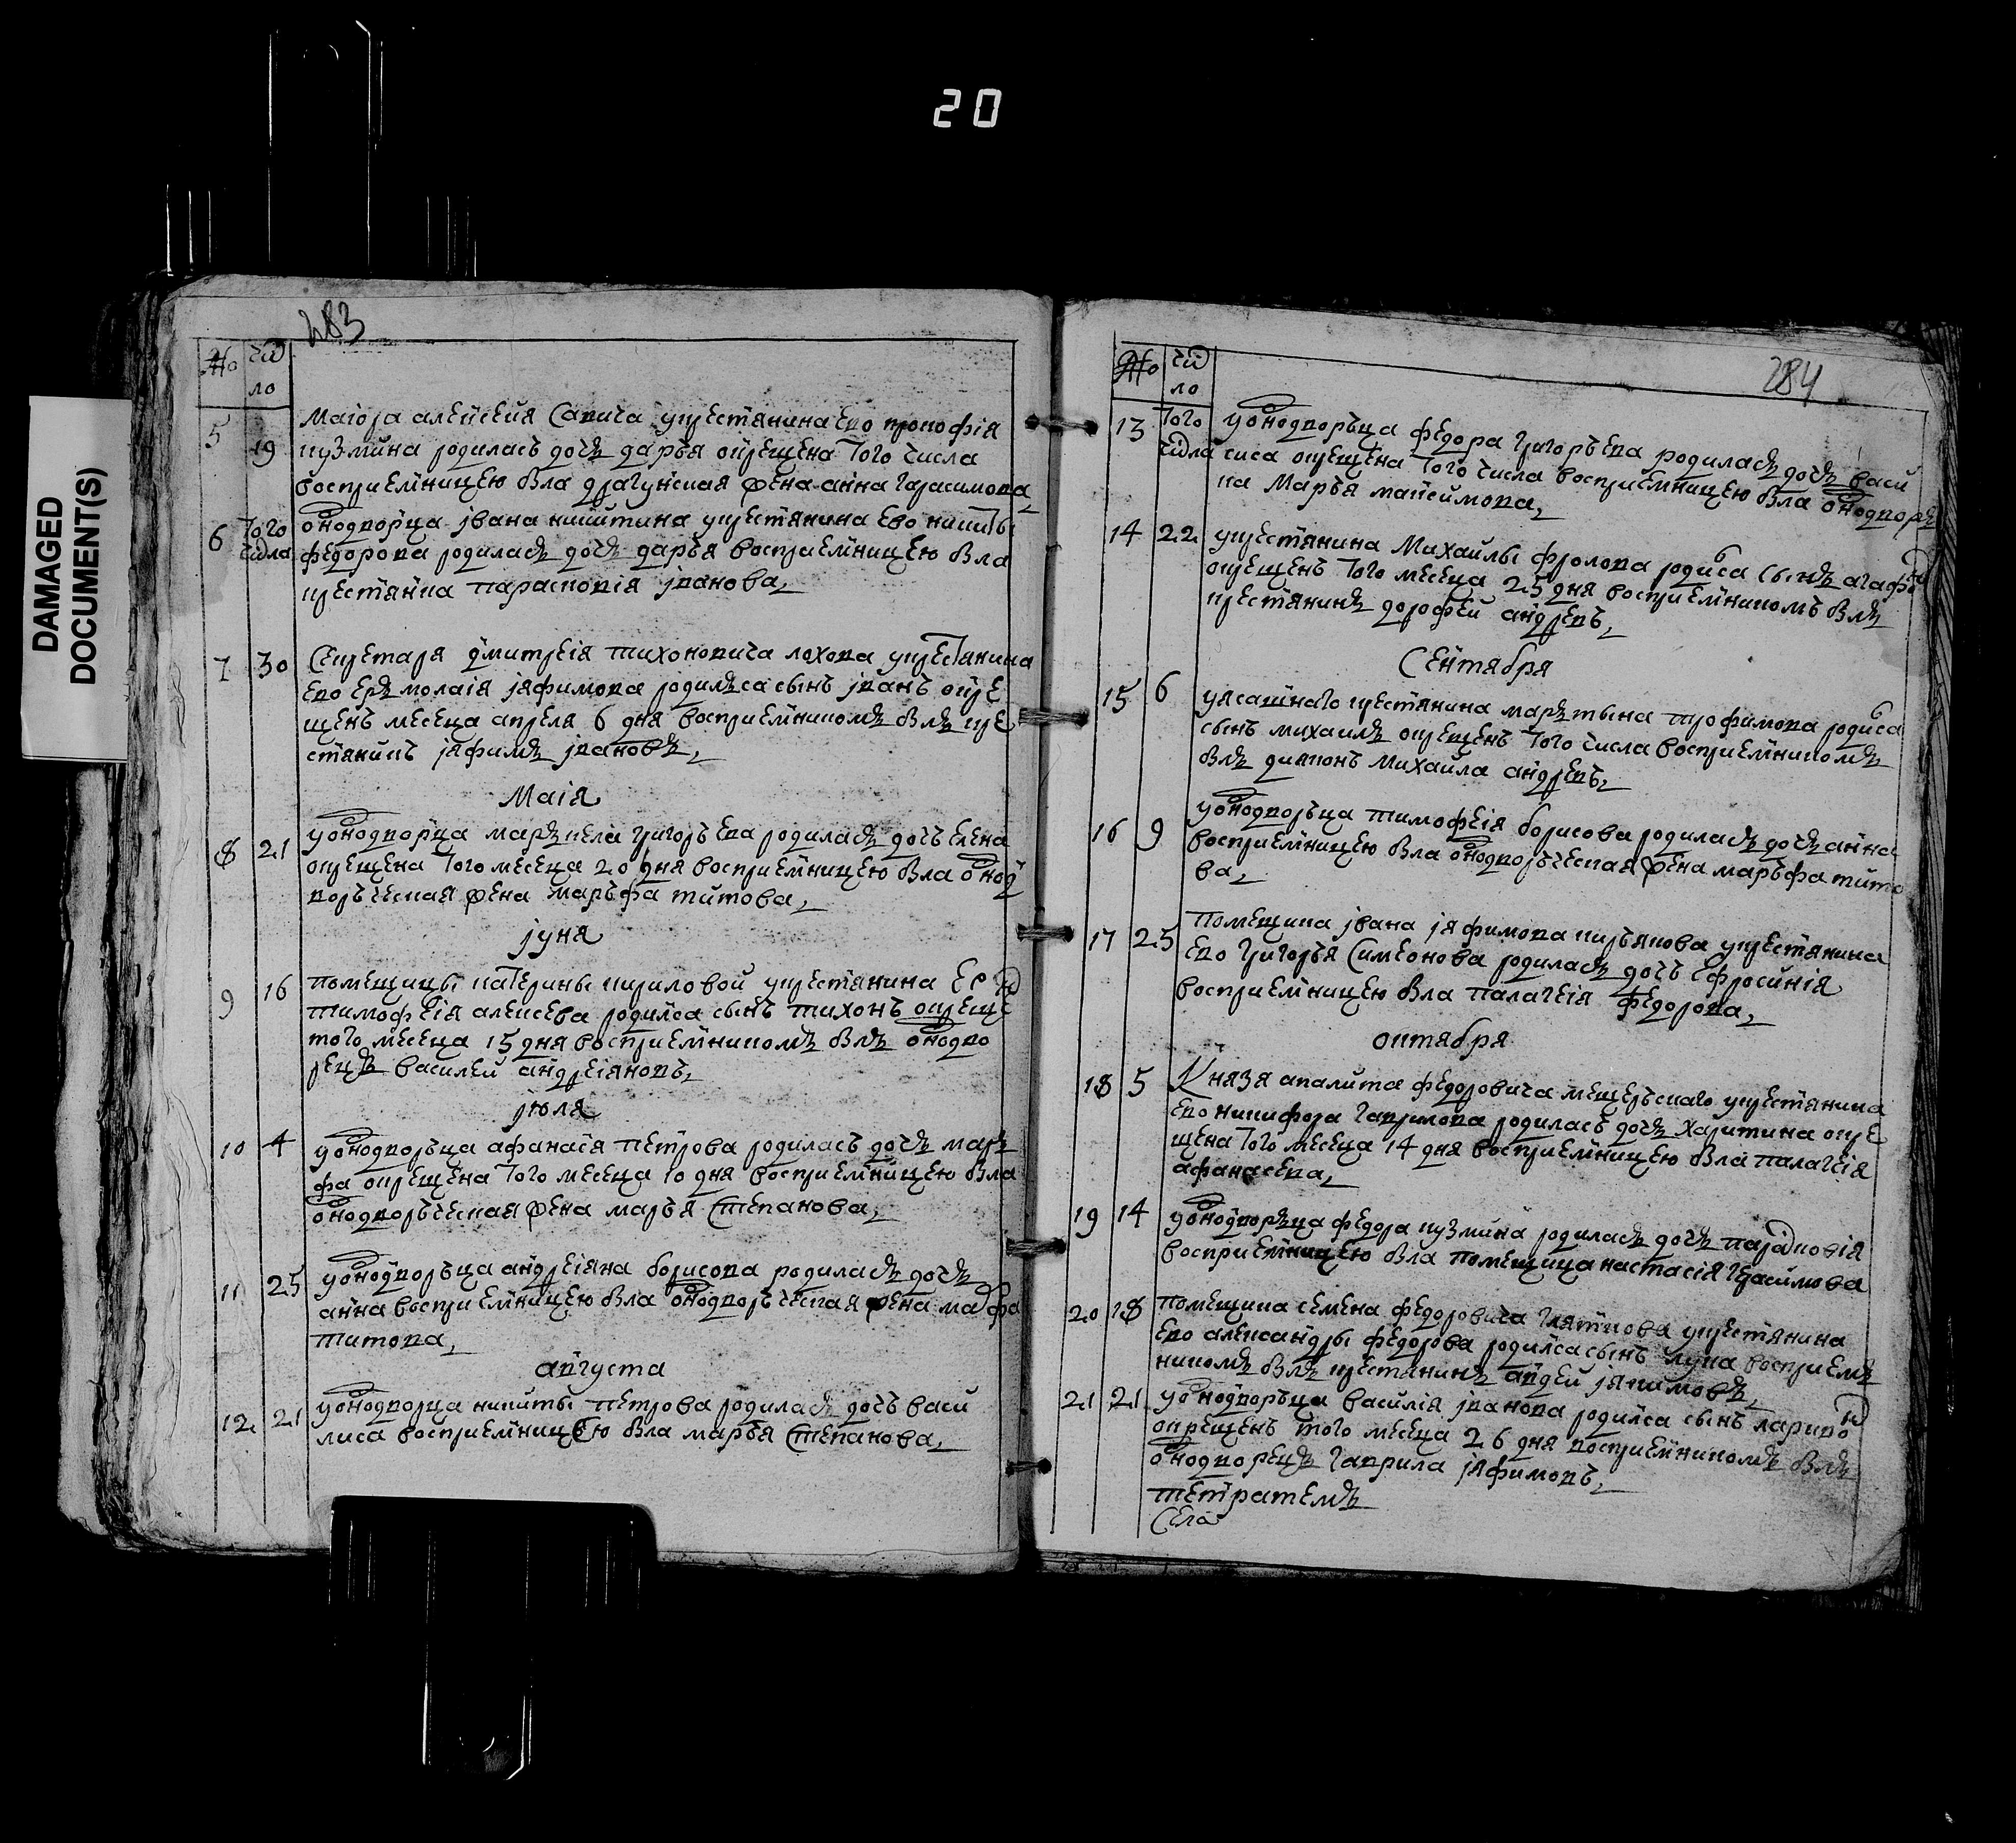 20
DAMAGED
DOCUMENT(S)
283
№ число
5 19 Маіора алеѯеия Савича укрестянина ево прокофія
кузмина родилась дочъ даръя окрещена того числа
восприемницею была драгунская жена анна гарасимова
6 того числа однодворца івана никитина укрестянина ево никиты
федорова родиласъ дочъ даръя восприемницею была
крестянка парасковія іванова
7 30 Секретаря дмитреія тихоновича лохова укрестянина
ево еръмолаія іяфимова родилъса сынъ іванъ окре
щенъ месеца апреля 6 дня восприемникомъ былъ кре
стянинъ іяфимъ івановъ
Маія
8 21 уоднодворца маръкела григоръева родиласъ дочъ елена
окрещена того месеца 20 дня восприемницею была однод
воръческая жена маръфа титова
іуня
9 16 помещицы катерины кириловой укрестянина ее
тимофеія алексева родился сынъ тихонъ окреще
того месеца 15 дня восприемникомъ былъ однодво
рецъ василей андреіяновъ
іюля
10 4 уоднодворъца афанасія петрова родилась дочъ маръ
фа окрещена того месеца 10 дня восприемницею была
однодворъческая жена маръя степанова
11 25 уоднодворъца андреіяна борисова родиласъ дочъ
анна восприемницею была однодворъческая жена марфа
титова
августа
12 21 уоднодворца никиты петрова родиласъ дочъ васи
лиса восприемницею была маръя степанова
284
№ число
13 того числа уоднодворъца федора григоръева родиласъ дочъ васи
лиса окрещена того числа восприемницею была однодворъ
ка Маръя макѕимова
14 22 укрестянина Михаилы фролова родилса сынъ агафон
окрещенъ того месеца 25 дня восприемникомъ былъ
крестянинъ дорофей андревъ
Сентября
15 6 уясашнаго крестянина марътына трофимова родилса
сынъ михаилъ окрещенъ того числа восприемникомъ
былъ дияконъ Михаила андревъ
16 9 уоднодворъца тимофеія борисова родиласъ дочъ анна
восприемницею была однодворъческая жена маръфа тито
ва
17 25 помещика івана іяфимова киръякова укрестянина
ево григоръя Симеонова родиласъ дочъ ефросинія
восприемницею была палагеія федорова
октября
18 5 Князя аполита федоровича мещеръскаго укрестянина
ево никифора гаврилова родилась дочъ харитина окре
щена того месеца 14 дня восприемницею была палагеія
афанасева
19 14 уоднодворъца федора кузмина родиласъ дочъ парасковія
восприемницею была помещица настасія герасимова
20 18 помещика семена федоровича гляткова укрестянина
ево александры федорова родился сынъ лука восприемъ
никомъ былъ крестянинъ андей іякимовъ
21 21 уоднодворъца василія іванова родился сынъ ларион
окрещенъ того месеца 26 дня восприемникомъ былъ
однодворецъ гаврила іяфимовъ
тетратемъ
Села